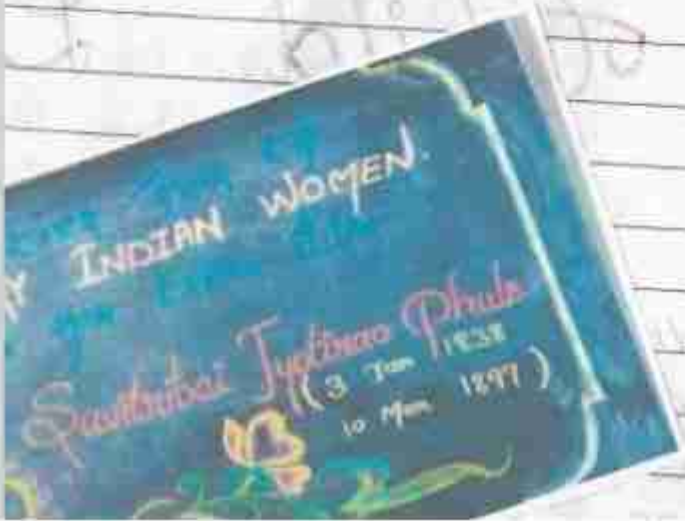 INDIAN WOMEN.
Savitribai Jyotirao Phule
(3 Jan 1838
10 Mar 1897)